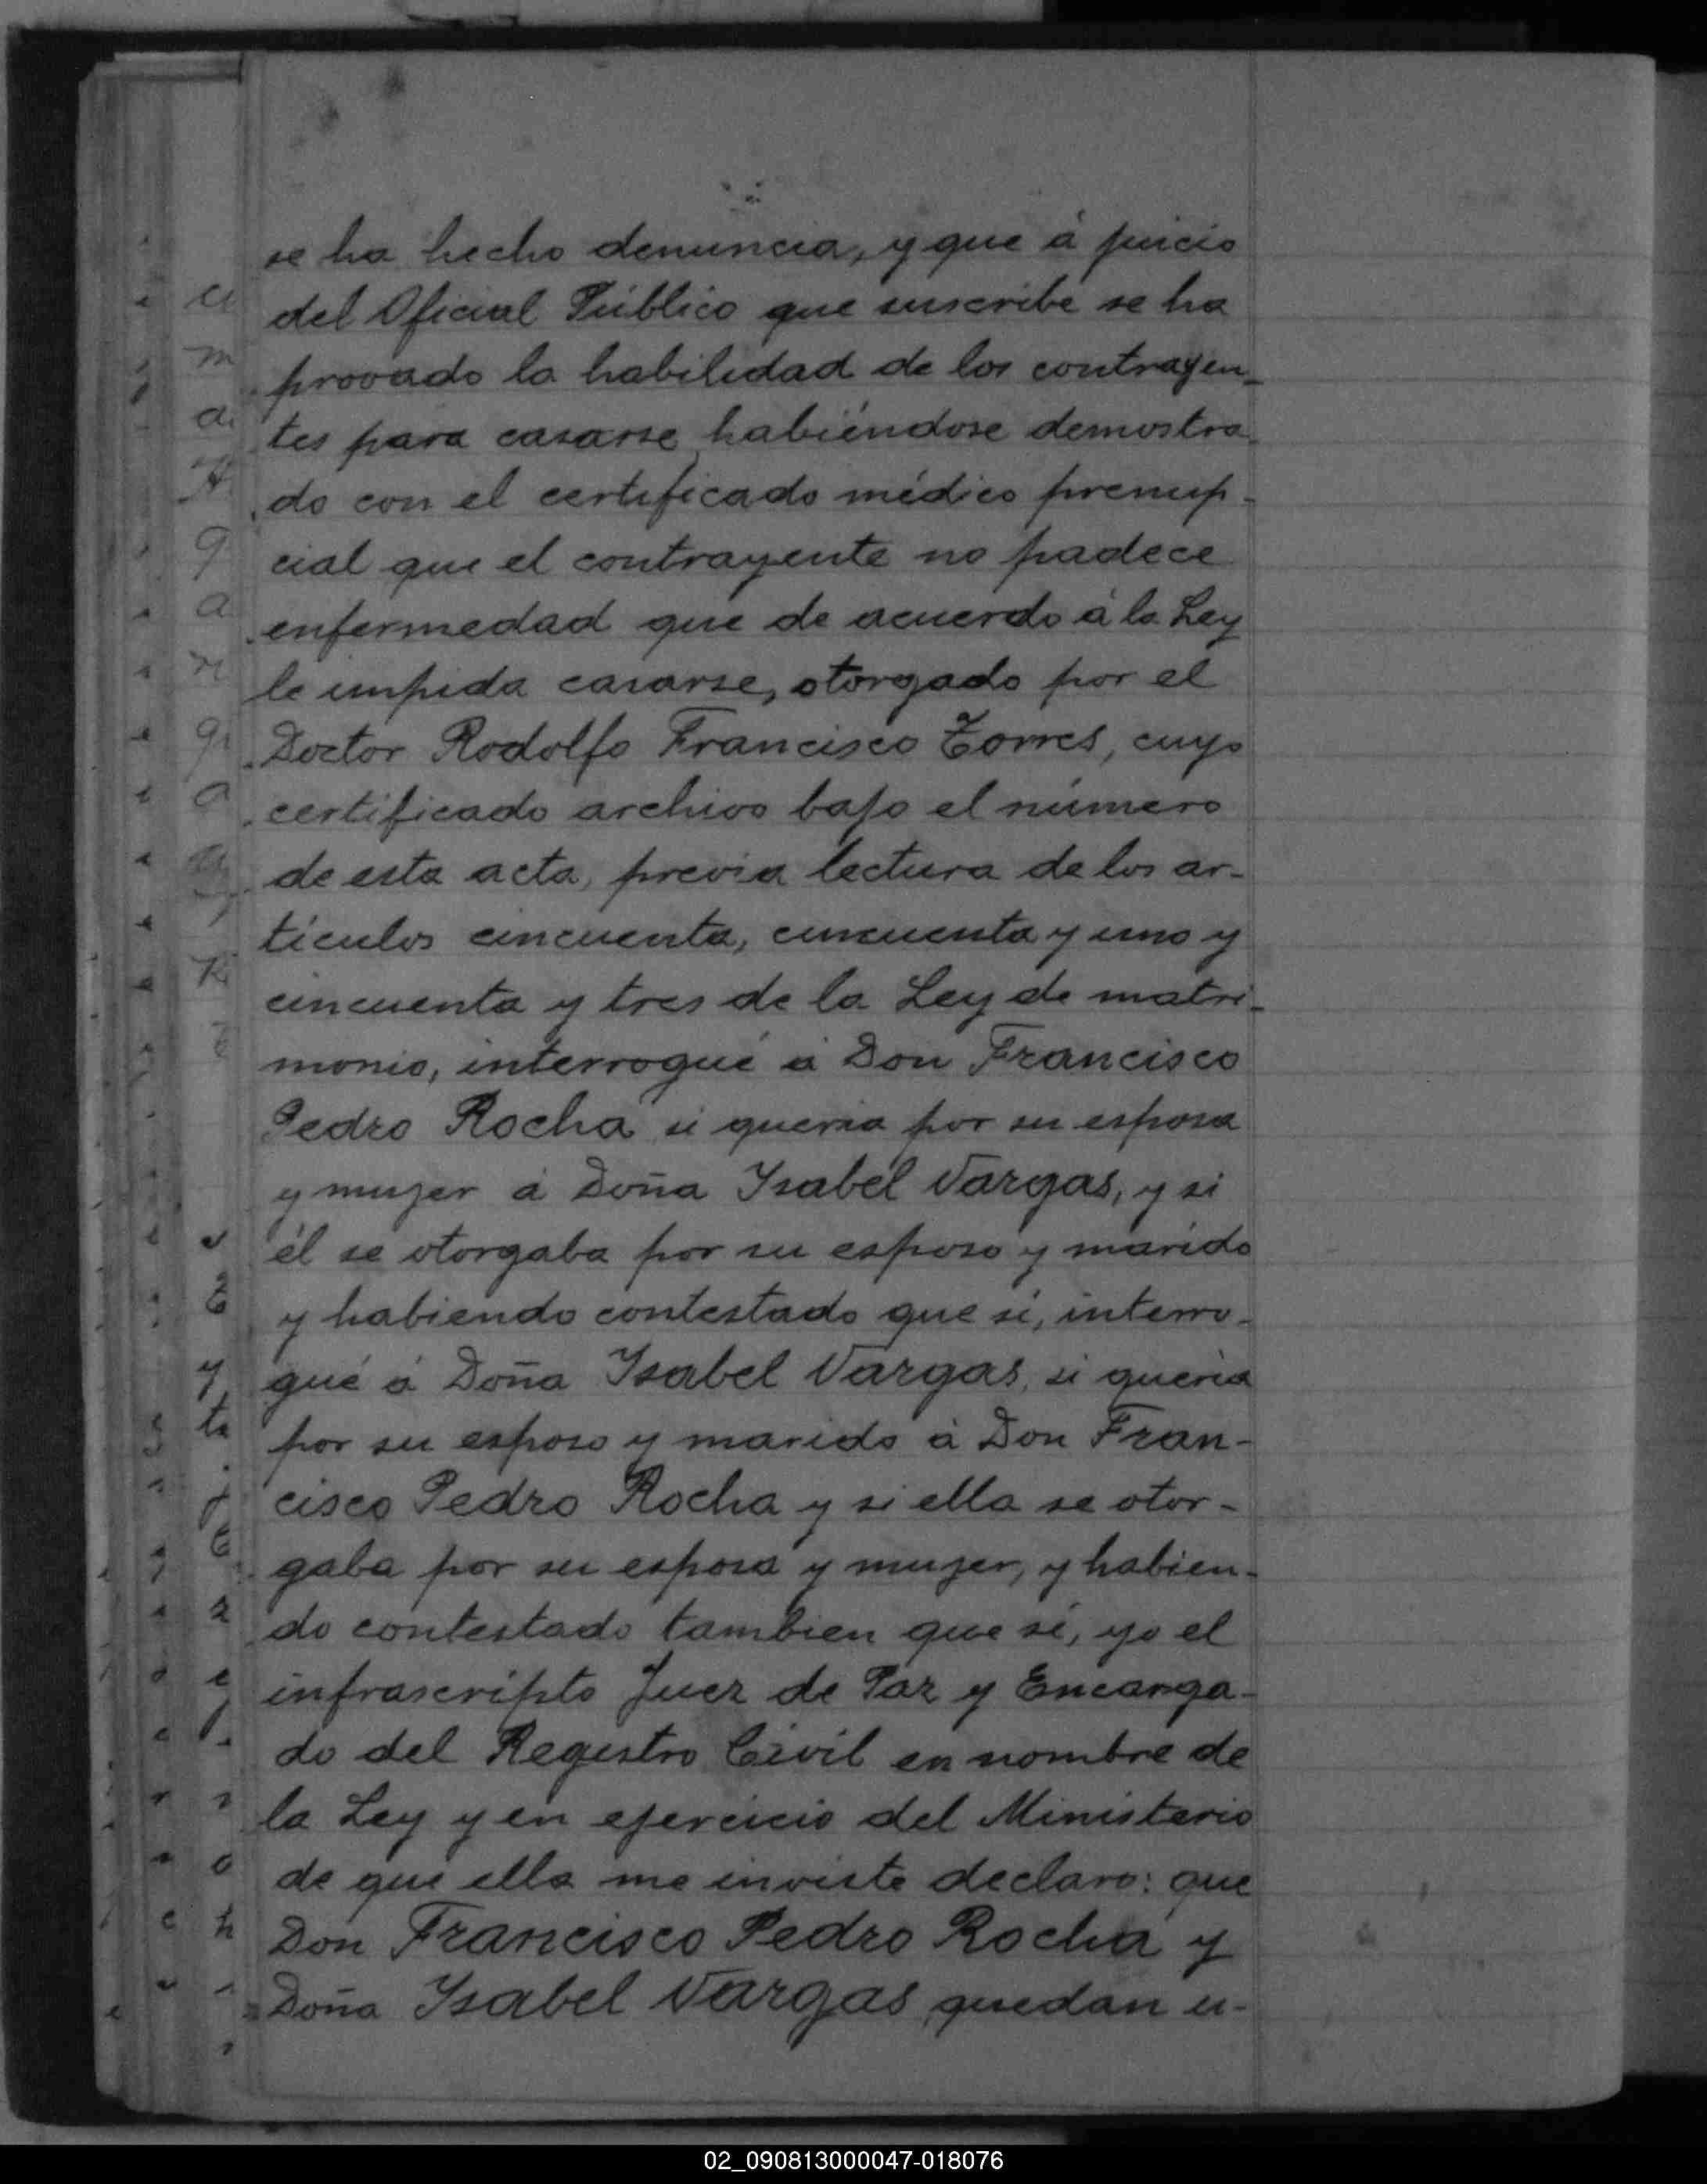 se ha hecho denuncia, y que á juicio
del Oficial Público que suscribe se ha
provado la habilidad de los contrayen-
tes para casarse, habiéndose demostra-
do con el certificado médico prenup-
cial que el contrayente no padece
enfermedad que de acuerdo á la Ley
le impida casarse, otorgado por el
Doctor Rodolfo Francisco Torres, cuyo
certificado archivo bajo el número
de esta acta, previa lectura de los ar-
tículos cincuenta, cincuenta y uno y
cincuenta y tres de la Ley de matri-
monio, interrogué á Don Francisco
Pedro Rocha si queria por su esposa
y mujer á Doña Isabel Vargas, y si
él se otorgaba por su esposo y marido
y habiendo contestado que sí, interro-
gué á Doña Isabel Vargas, si quería
por su esposo y marido á Don Fran-
cisco Pedro Rocha y si ella se otor-
gaba por su esposa y mujer, y habien-
do contestado tambien que sí, yo el
infrascripto Juez de Paz y Encarga-
do del Registro Civil en nombre de
la Ley y en ejercicio del Ministerio
de que ella me inviste declaro: que
Don Francisco Pedro Rocha y
Doña Isabel Vargas, quedan u-
02_090813000047-018076